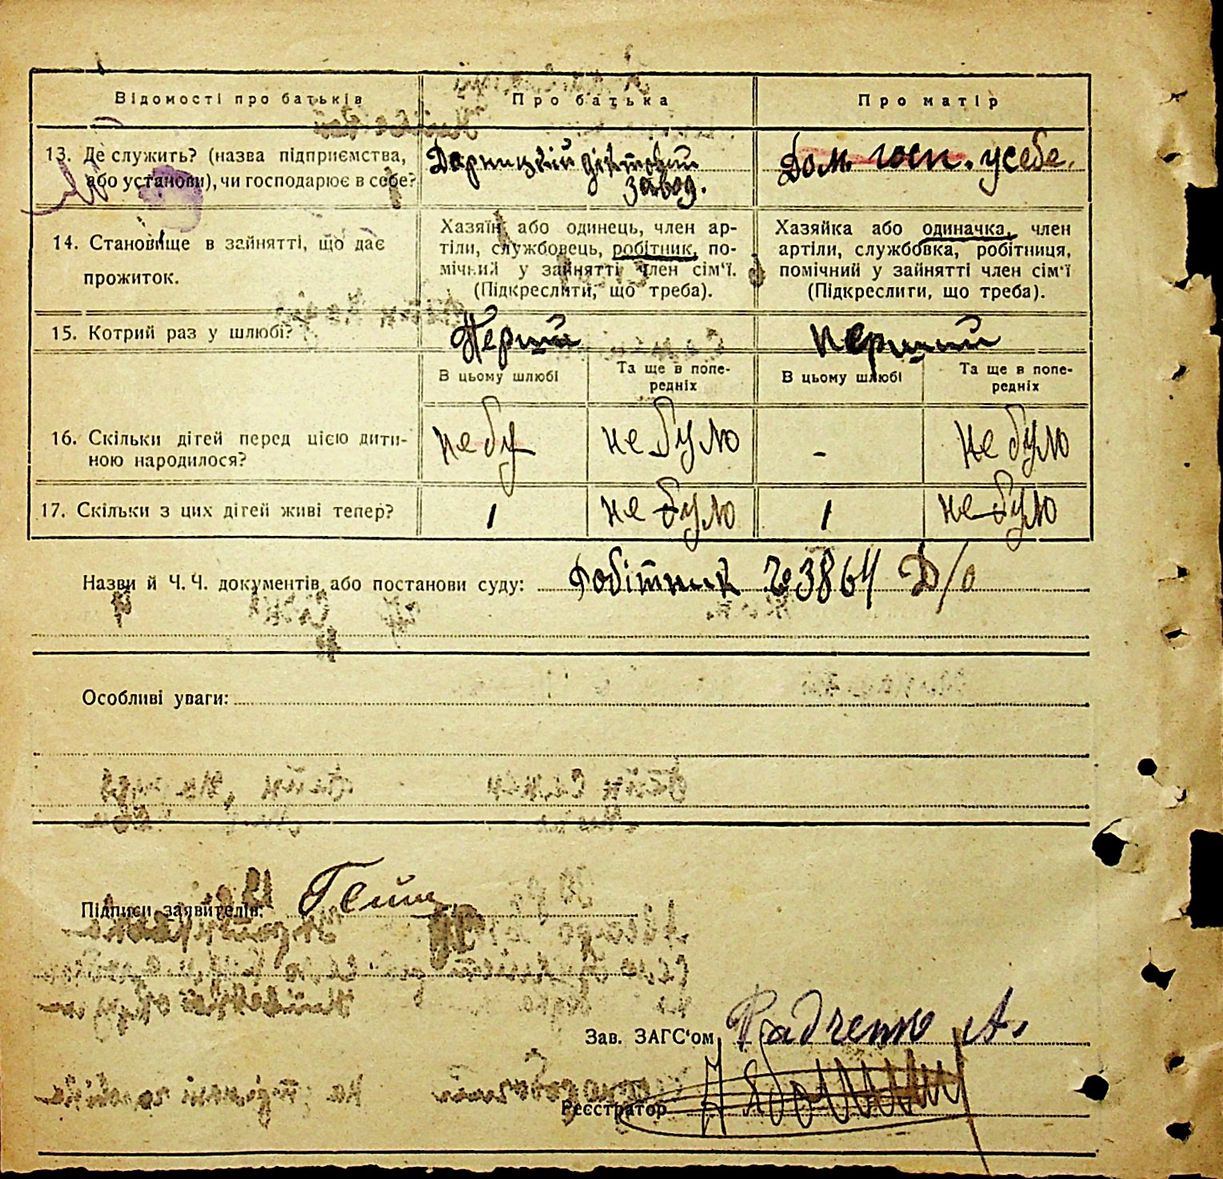 Відомості про батьків
Про батька
Про матір
13. Де служить? (назва підприємства,
або установи), чи господарює в себе?
Дарницький
завод.
Дом. госп. у себе.
14. Становище в зайнятті, що дає
прожиток.
Хазяїн або одинець, член ар-
тілі, службовець, робітник, по-
мічний у зайнятті член сім'ї.
(Підкреслити, що треба).
Хазяйка або одиначка, член
артіли, службовка, робітниця,
помічний у зайнятті член сім'ї
(Підкреслити, що треба).
15. Котрий раз у шлюбі?
Перший
перший
В цьому шлюбі
Та ще в попе-
редніх
В цьому шлюбі
Та ще в попе-
редніх
16. Скільки дітей перед цією дити-
ною народилося?
не бу
не було
-
не було
17. Скільки з цих дітей живі тепер?
1
не було
1
не було
Назви й Ч.Ч. документів або постанови суду: Робітник №3864 Д/о
Особливі уваги:
Підписи заявителів:
Зав. ЗАГС'ом Радченко А.
Реєстратор